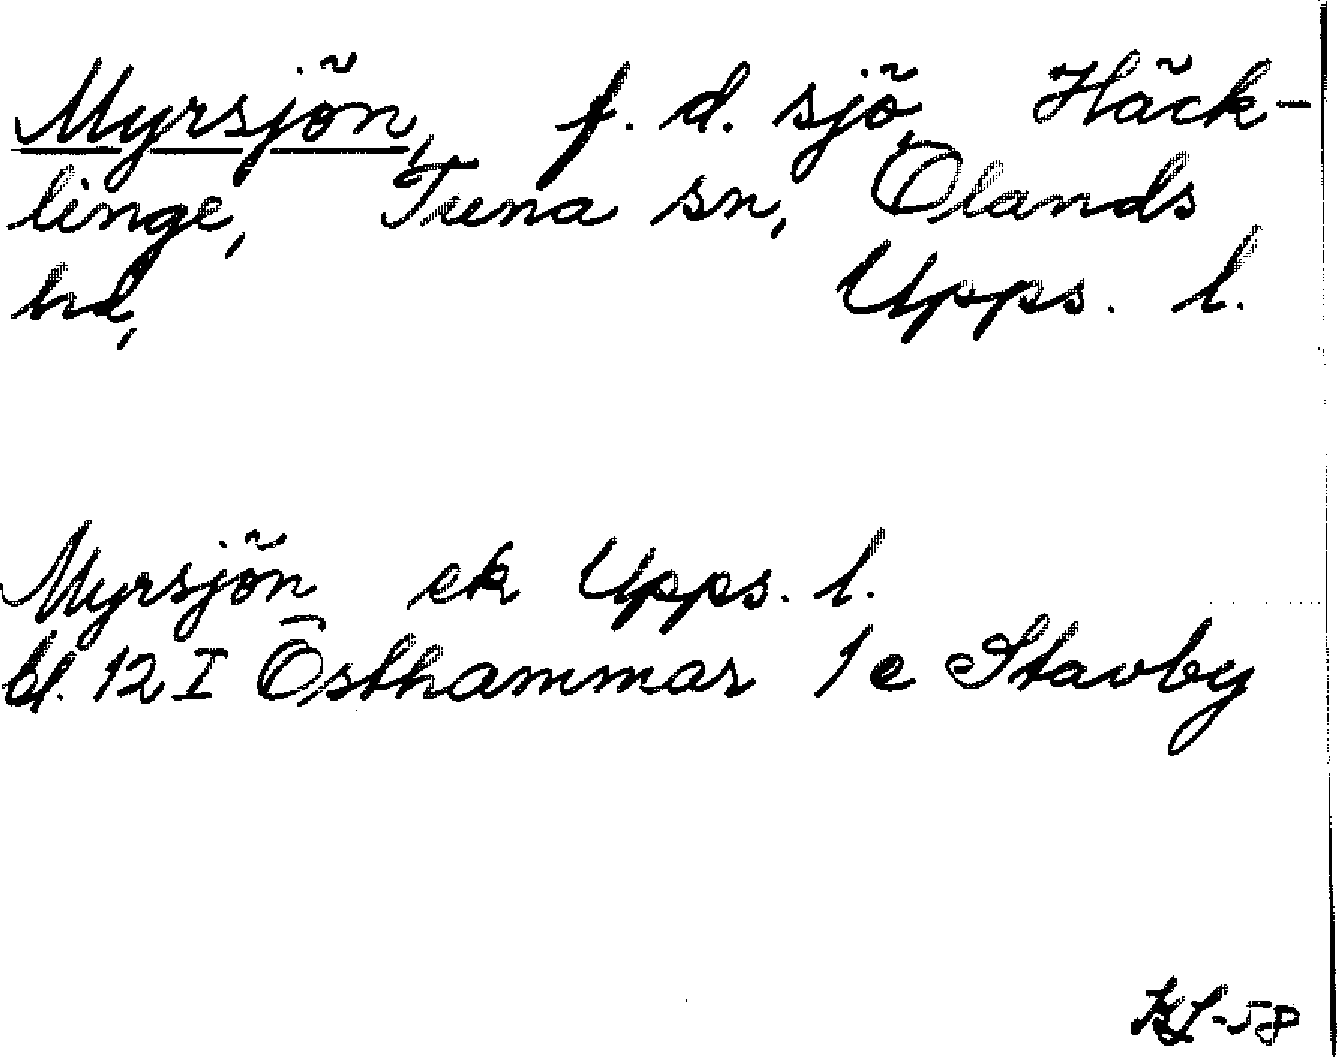 Myrsjön, f. d. sjö, Häck-
linge, Tuna sn, Olands
hd, Upps. l.
Myrsjön ek Upps. l.
bl. 12 I Östhammar 1e Stavby
KL-58